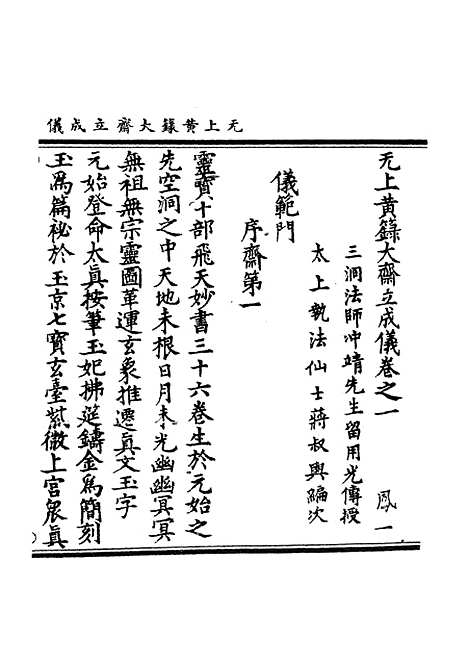 无上黄籙大齋立成儀
无上黄籙大齋立成儀卷之一 鳳一
三洞法師冲靖先生留用光傳授
太上執法仙士蔣叔輿編次
儀範門
序齋第一
靈寶十部飛天妙書三十六卷生於元始之
先空洞之中天地未根日月未光幽幽冥冥
無祖無宗靈圖革運玄象推遷眞文玉字
元始登命太眞按筆玉妃拂筵鑄金爲簡刻
玉爲篇祕於玉京七寶玄臺紫微上宮衆眞